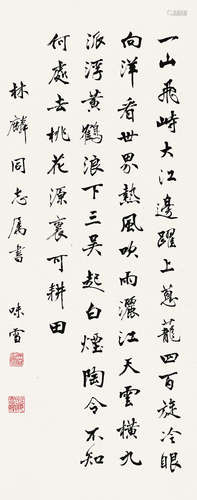 一山飛峙大江邊躍上蔥蘢四百旋冷眼
向洋看世界熱風吹雨灑江天雲橫九
派浮黃鶴浪下三吳起白煙陶令不知
何處去桃花源裏可耕田
林麟同志屬書 味雪